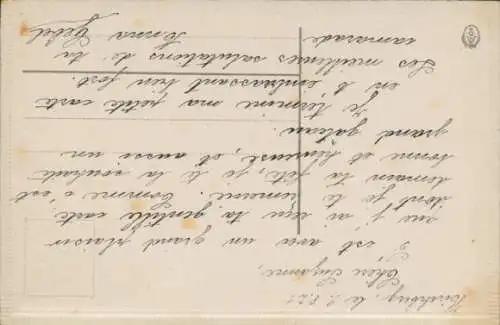 le 2.8.21
Chère Suzanne,
C'est avec un grand plaisir
que j'ai reçu ta gentille carte
dont je te remercie. Comme c'est
demain ta fête, je te la souhaite
bonne et heureuse, et aussi un
grand gâteau.
Je termine ma petite carte
en t'embrassant bien fort.
Les meilleures salutations de ta
camarade Emma Gebel